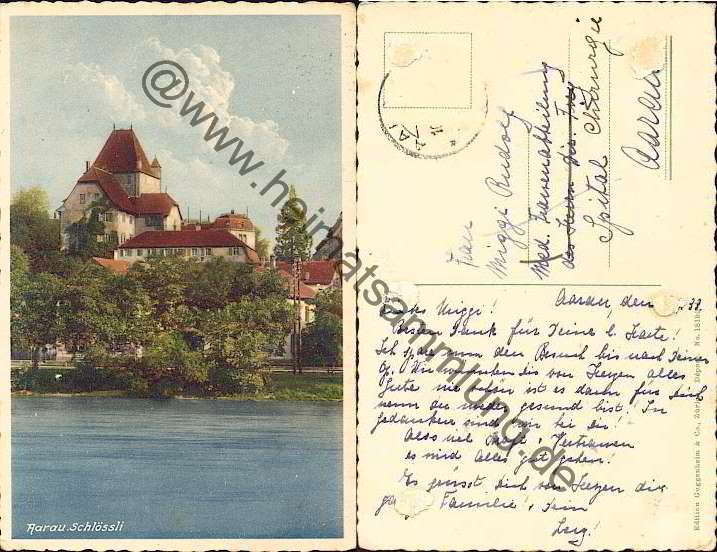 Aarau. Schlössli
@www.heimatsammlung.de
Frau
Miggi Rudolf
Med. Frauenabteilung
Spital Chirurgie
Aarau
Miggi!
Aarau, den 37.
Besten Dank für Deine l. Karte!
Ich spare nun den Besuch bis nach Deiner
Op. Wir wünschen Dir von Herzen alles
Gute wie schön ist es dann für Dich
wenn du wieder gesund bist! In
Gedanken sind wir bei dir!
Also viel Vertrauen
es wird Alles gut gehen!
Es grüsst Dich von Herzen die
Familie!
Edition Guggenheim & Co., Zürich Dépos. No. 1818